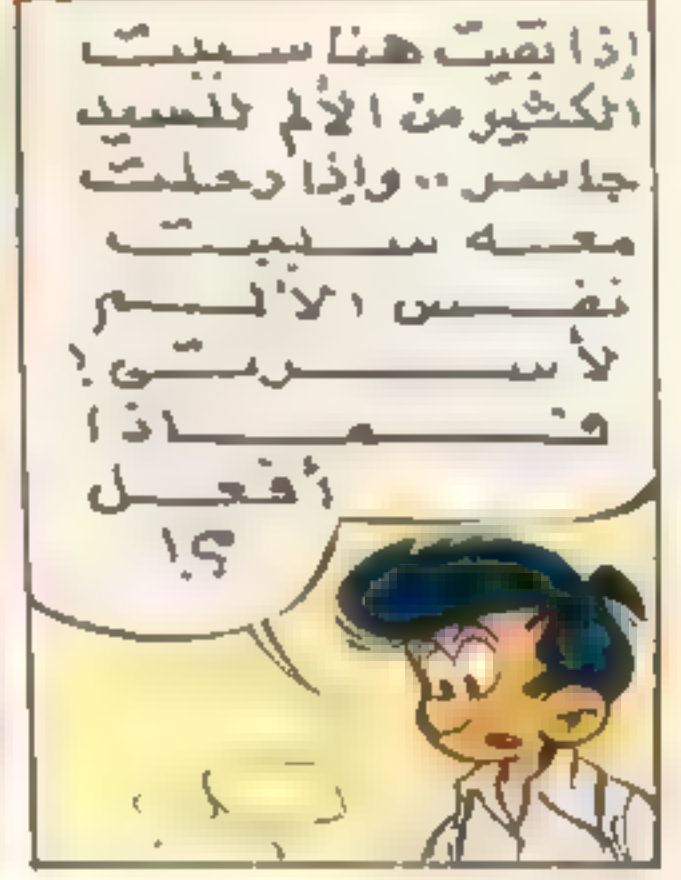 إذا بقيت هنا سببت
الكثير من الألم للسيد
جاسر .. وإذا رحلت
معه سببت
نفس الألم
لأسرتى !
فماذا
أفعل
؟!